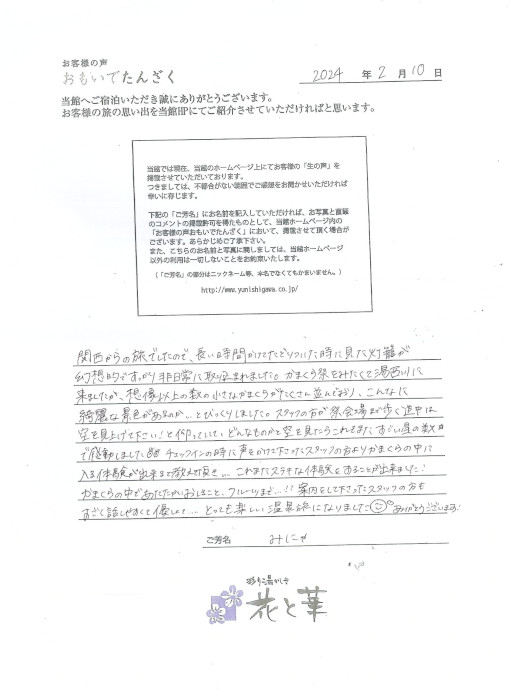 お客様の声
おもいでたんざく
2024 年 2 月 10 日
当館へご宿泊いただき誠にありがとうございます。
お客様の旅の思い出を当館HPにてご紹介させていただければと思います。
当館では現在、当館のホームページ上にてお客様の「生の声」を
掲載させていただいております。
つきましては、不都合がない範囲でご感想をお聞かせいただければ
幸いに存じます。
下記の「ご芳名」にお名前を記入していただければ、お写真と直筆
のコメントの掲載許可を得たものとして、当館ホームページ内の
「お客様の声おもいでたんざく」において、掲載させて頂く場合が
ございます。あらかじめご了承下さい。
また、こちらのお名前と写真に関しましては、当館ホームページ
以外の利用は一切しないことをお約束いたします。
(「ご芳名」の部分はニックネーム等、本名でなくてもかまいません。)
http://www.yunishigawa.co.jp/
関西からの旅でしたので、長い時間かけてたどりついた時に見た灯籠が
幻想的ですっかり非日常に取り込まれました。かまくら祭をみたくて湯西川に
来ましたが、想像以上の数の小さなかまくらがたくさん並んでおり、こんなに
綺麗な景色があるのか…とびっくりしました。スタッフの方が祭会場まで歩く道中は
空を見上げて下さい!と仰っていて、どんなものかと空を見たらこれまたすごい星の数
で感動しました チェックインの時に声をかけて下さったスタッフの方よりかまくらの中に
入る体験が出来ると教えて頂き…これまたステキな体験をすることが出来ました!
かまくらの中であたたかいおしること、フルーツまで…!! 案内をして下さったスタッフの方も
すごく話しやすくて優しくて…とっても楽しい温泉旅になりました ありがとうございます!
ご芳名 みにゃ
彩り湯かしき
花と華